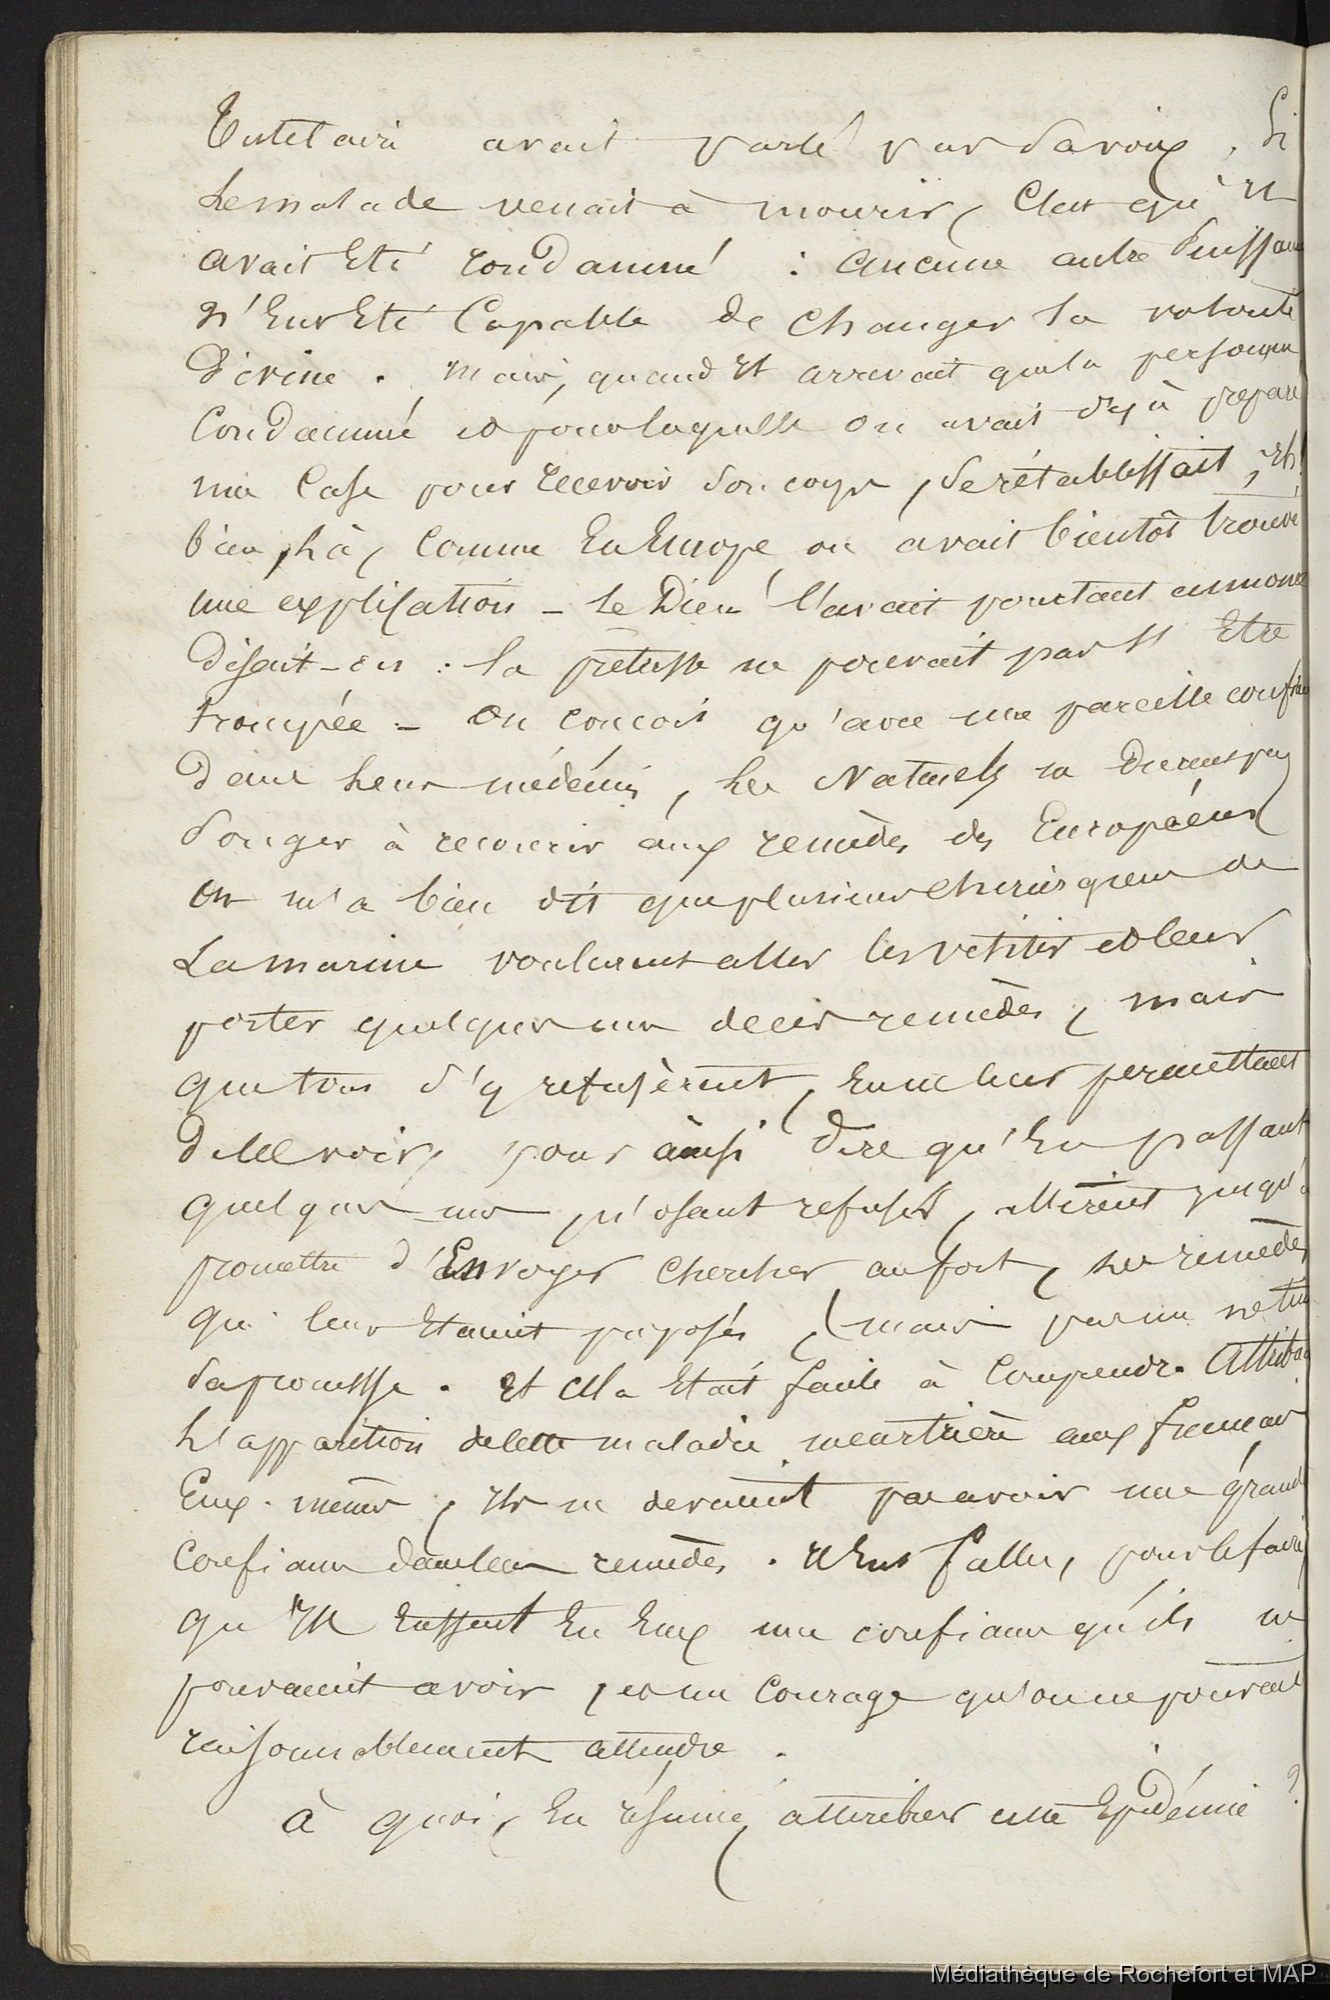 Tutelaire avait parlé par sa voix. Si
le malade venait à mourir, c'est qu'il
avait été condamné : aucune autre puissance
n'eut été capable de changer la volonté
divine. Mais, quand il arrivait que la personne
condamnée et pour laquelle on avait déjà préparé
une case pour recevoir son corps, se rétablissait, eh!
bien, là, comme en Europe, on avait bientôt trouvé
une explication – le Dieu l'avait pourtant annoncé
disait-on : la prêtresse ne pouvait pas s'être
trompée – On conçoit qu'avec une pareille confiance
dans leurs médecins, les Naturels ne durent pas
songer à recourir aux remèdes des Européens
On m'a bien dit que plusieurs chirurgiens de
la marine voulurent aller les visiter et leur
porter quelques uns de ces remèdes, mais
que tous s'y refusèrent, en ne leur permettant
de les voir, pour ainsi dire qu'en passant
quelques-uns n'osant refuser, allèrent jusqu'à
promettre d'envoyer chercher au fort, les remèdes
qui leur étaient proposés, mais pas un ne tint
sa promesse. Et cela était facile à comprendre. Attribuant
l'apparition de cette maladie meurtrière aux français
eux-mêmes, ils ne devaient pas avoir une grande
confiance dans leurs remèdes. Il eut fallu, pour le faire,
qu'ils eussent en eux une confiance qu'ils ne
pouvaient avoir, et un courage qu'on ne pouvait
raisonnablement attendre.
à quoi, en résumé, attribuer cette Epidémie ?
Médiathèque de Rochefort et MAP